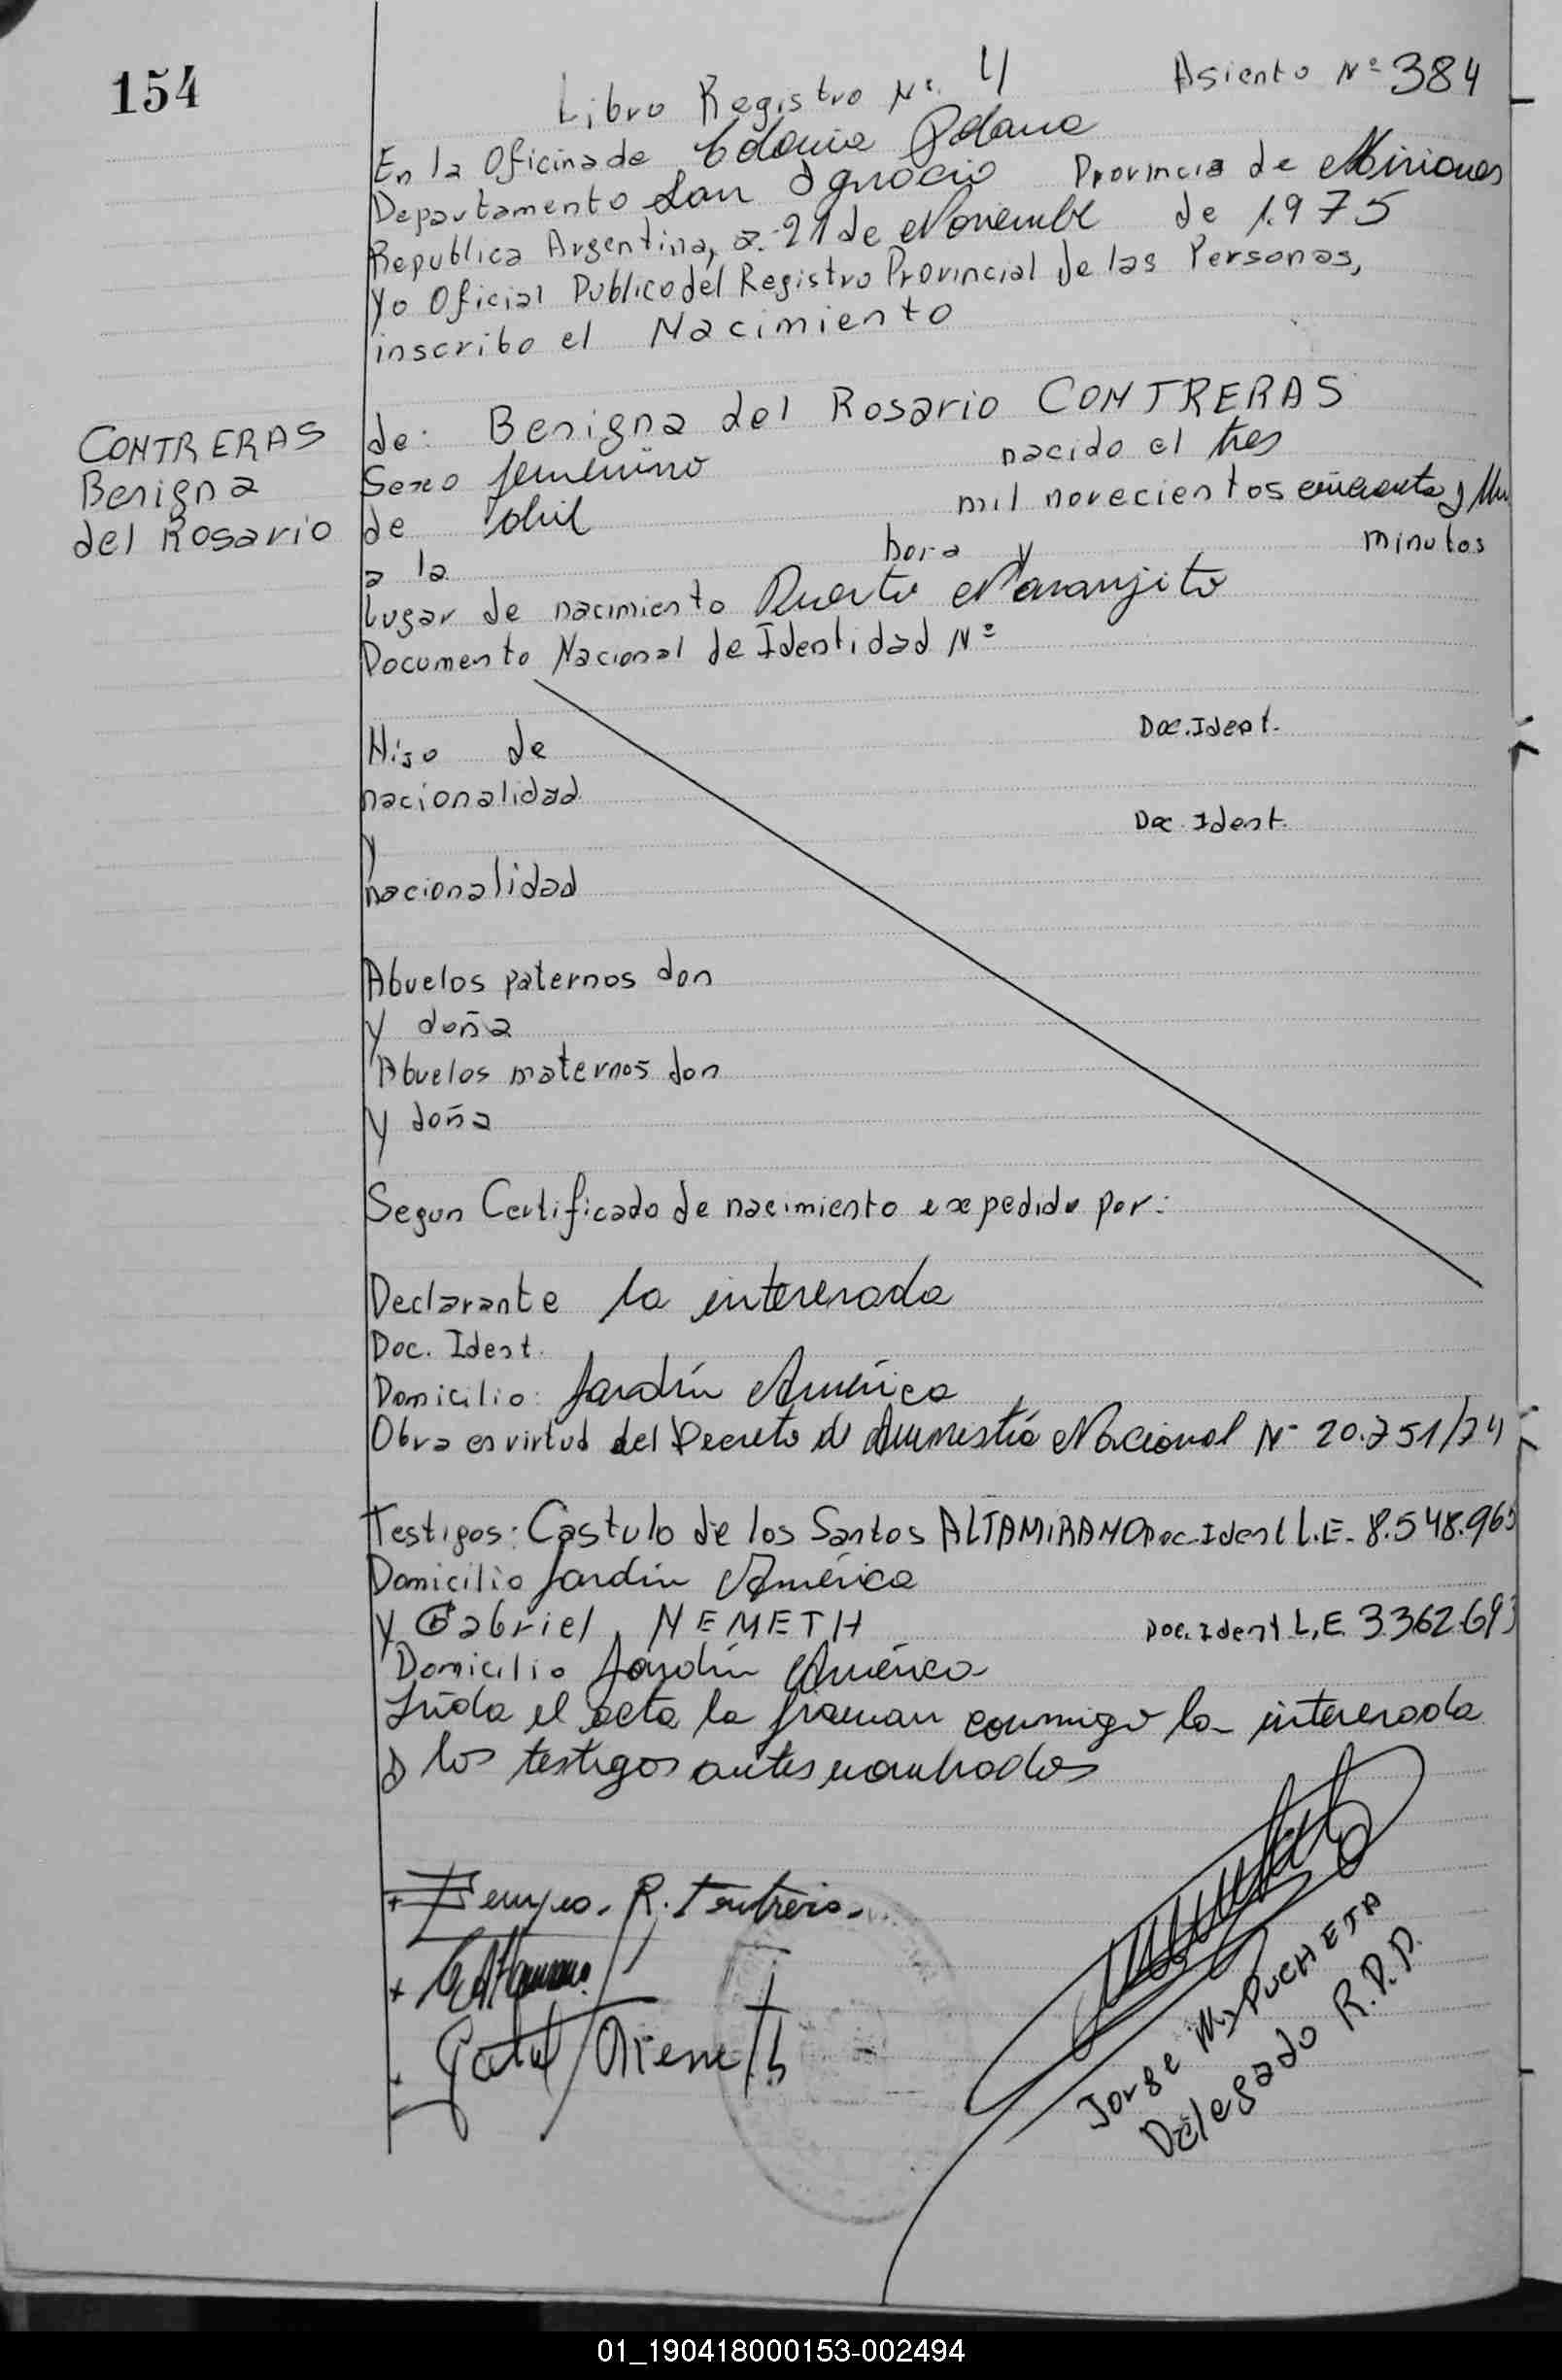 154
Libro Registro Nº 4 Asiento Nº 384
En la Oficina de Colonia Polana
Departamento San Ignacio Provincia de Misiones
Republica Argentina, a 21 de Noviembre de 1.975
Yo Oficial Publico del Registro Provincial de las Personas,
inscribo el Nacimiento
CONTRERAS
Benigna
del Rosario
de: Benigna del Rosario CONTRERAS
Sexo femenino nacido el tres
de abril mil novecientos cincuenta y
a la hora y minutos
Lugar de nacimiento Puerto Naranjito
Documento Nacional de Identidad Nº
Hijo de Doc. Ident.
nacionalidad
y Doc. Ident.
nacionalidad
Abuelos paternos don
y doña
Abuelos maternos don
y doña
Segun Certificado de nacimiento expedido por:
Declarante la interesada
Doc. Ident.
Domicilio: Jardín América
Obra en virtud del Decreto de Amnistía Nacional Nº 20.751/74
Testigos: Castulo de los Santos ALTAMIRANO Doc. Ident L.E. 8.548.965
Domicilio Jardín América
y Gabriel NEMETH Doc. Ident L.E. 3362.693
Domicilio Jardín América
Leída el acta la firman conmigo la interesada
y los testigos antes nombrados
Jorge M. PUCHETA
Delegado R.P.P.
01_190418000153-002494